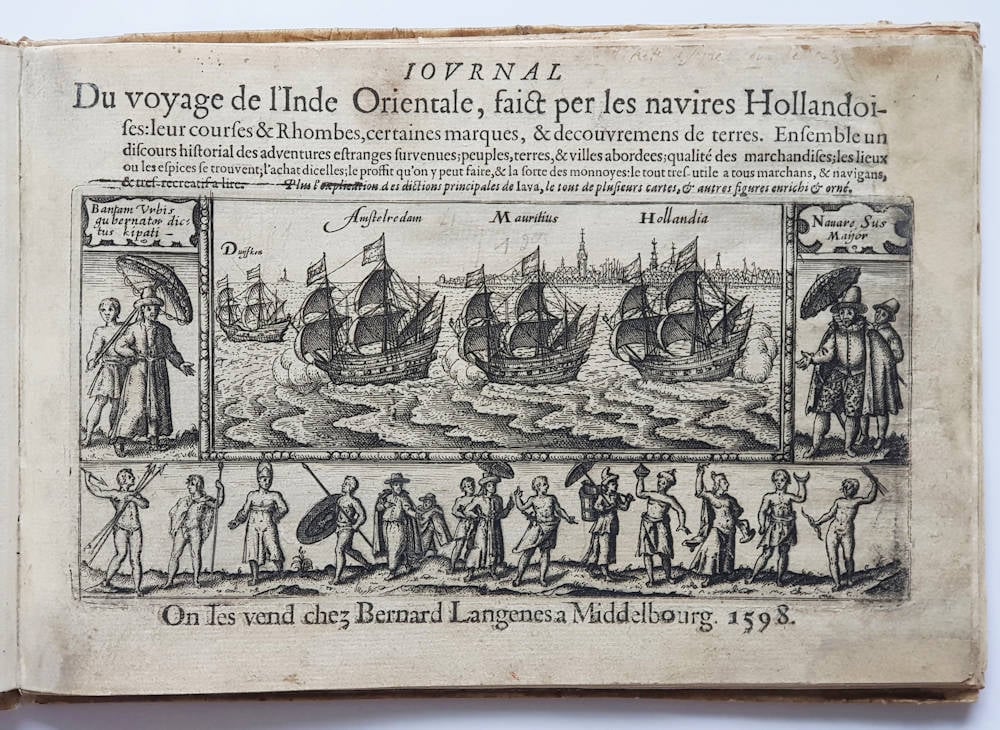 IOVRNAL
Du voyage de l'Inde Orientale, faict per les navires Hollandoi-
ſes: leur courſes & Rhombes, certaines marques, & decouvremens de terres. Enſemble un
diſcours hiſtorial des adventures eſtranges ſurvenues; peuples, terres, & villes abordees; qualité des marchandiſes; les lieux
ou les eſpices ſe trouvent; l'achat dicelles; le proffit qu'on y peut faire, & la ſorte des monnoyes: le tout treſ utile a tous marchans, & navigans,
& treſ-recreatif a lire. Plus l'explication des dictions principales de Iava, le tout de pluſieurs cartes, & autres figures enrichi & orné.
Bantam Vrbis
gubernator dic=
tus kipati
Duijfken
Amſtelredam
Mauritius
Hollandia
Navarc, Sus
Maijor
On les vend chez Bernard Langenes a Middelbourg. 1598.